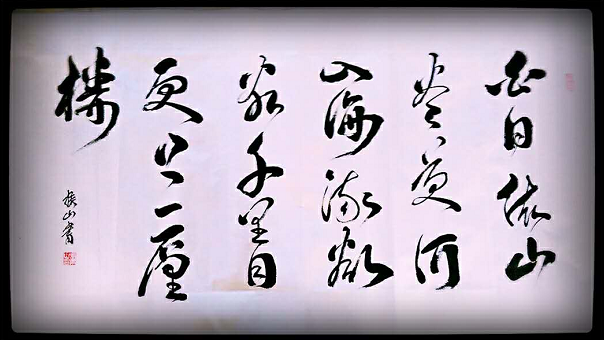 白日依山
尽黄河
入海流欲
窮千里目
更上一層
樓
山書